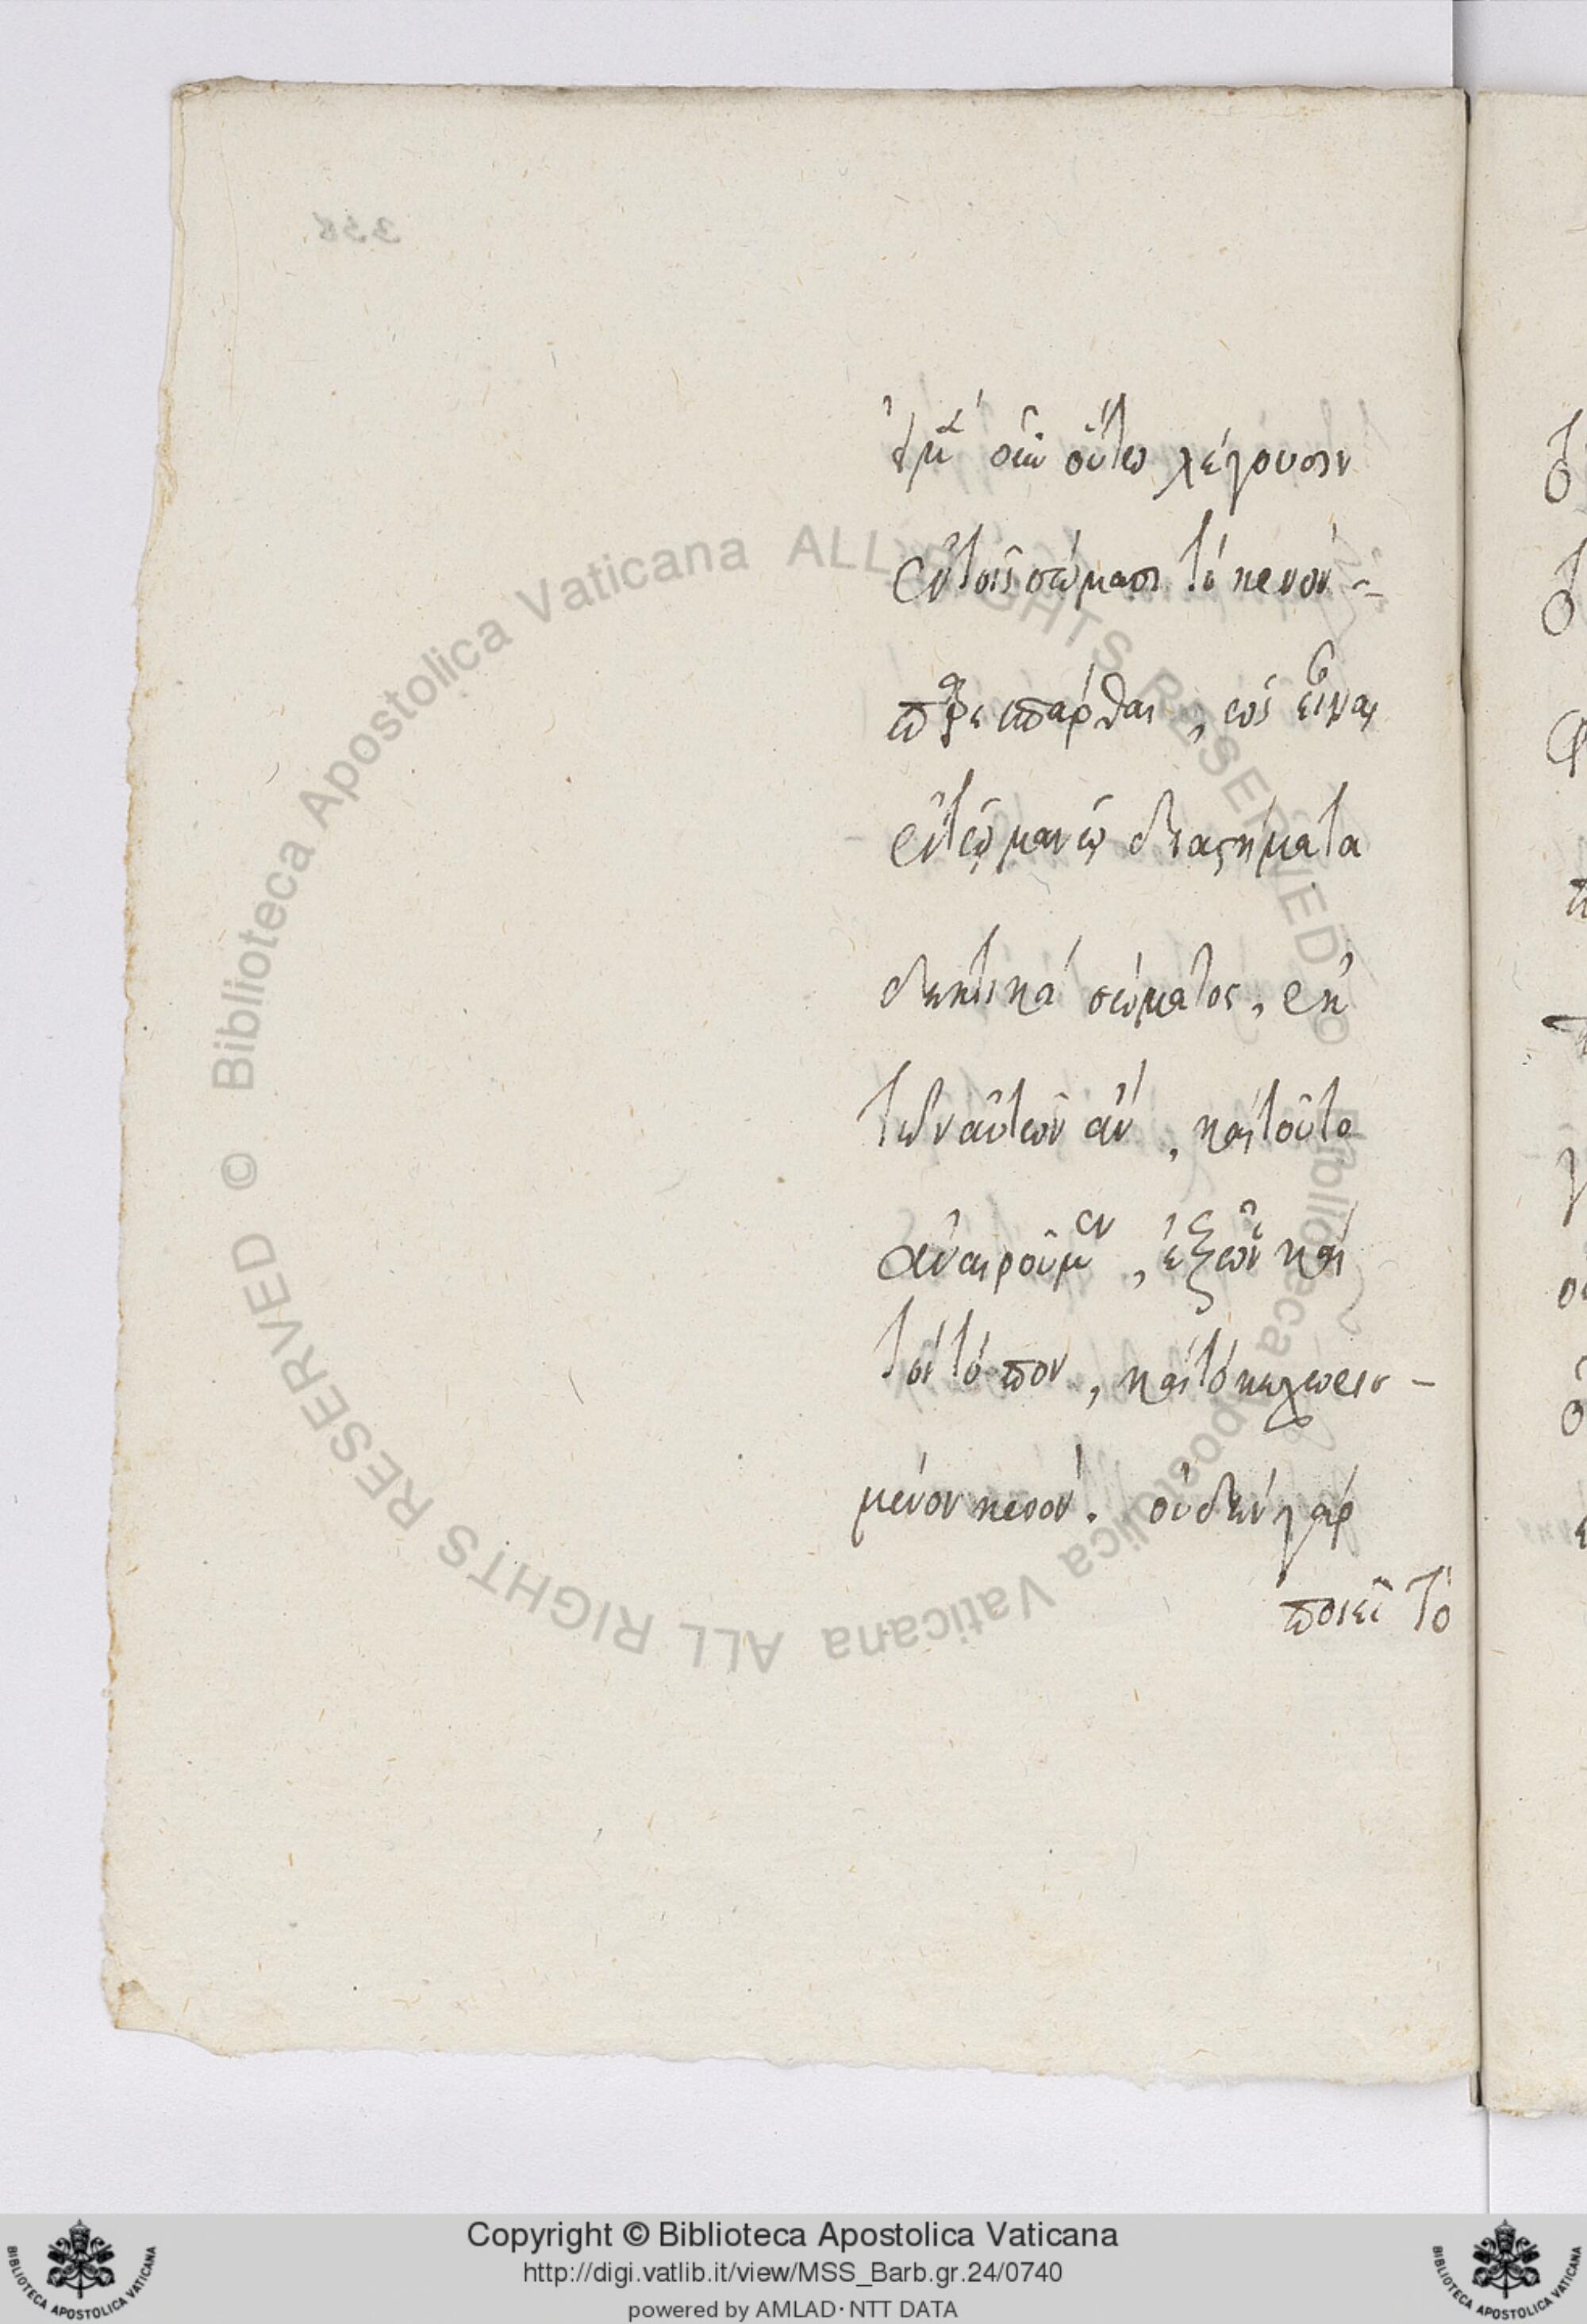 ὅμ(α) οὖν οὕτω λέγουσιν
ἐν τοῖς σώμασι τὸ κενὸν
παρεσπάρθαι, ὡς εἶναι
ἐν τῷ μανῷ διαστήματα
δεκτικὰ σώματος, ἐκ
τῶν αὐτῶν ἂν, καὶ τοῦτο
ἀναιροῦμεν, ἐξ ὧν καὶ
τὸν τόπον, καὶ τὸ κεχωρισ-
μένον κενόν. οὐδὲν γὰρ
ποιεῖ τὸ
Copyright © Biblioteca Apostolica Vaticana
http://digi.vatlib.it/view/MSS_Barb.gr.24/0740
powered by AMLAD · NTT DATA
© Biblioteca Apostolica Vaticana ALL RIGHTS RESERVED
© Biblioteca Apostolica Vaticana ALL RIGHTS RESERVED
BIBLIOTECA APOSTOLICA VATICANA
BIBLIOTECA APOSTOLICA VATICANA